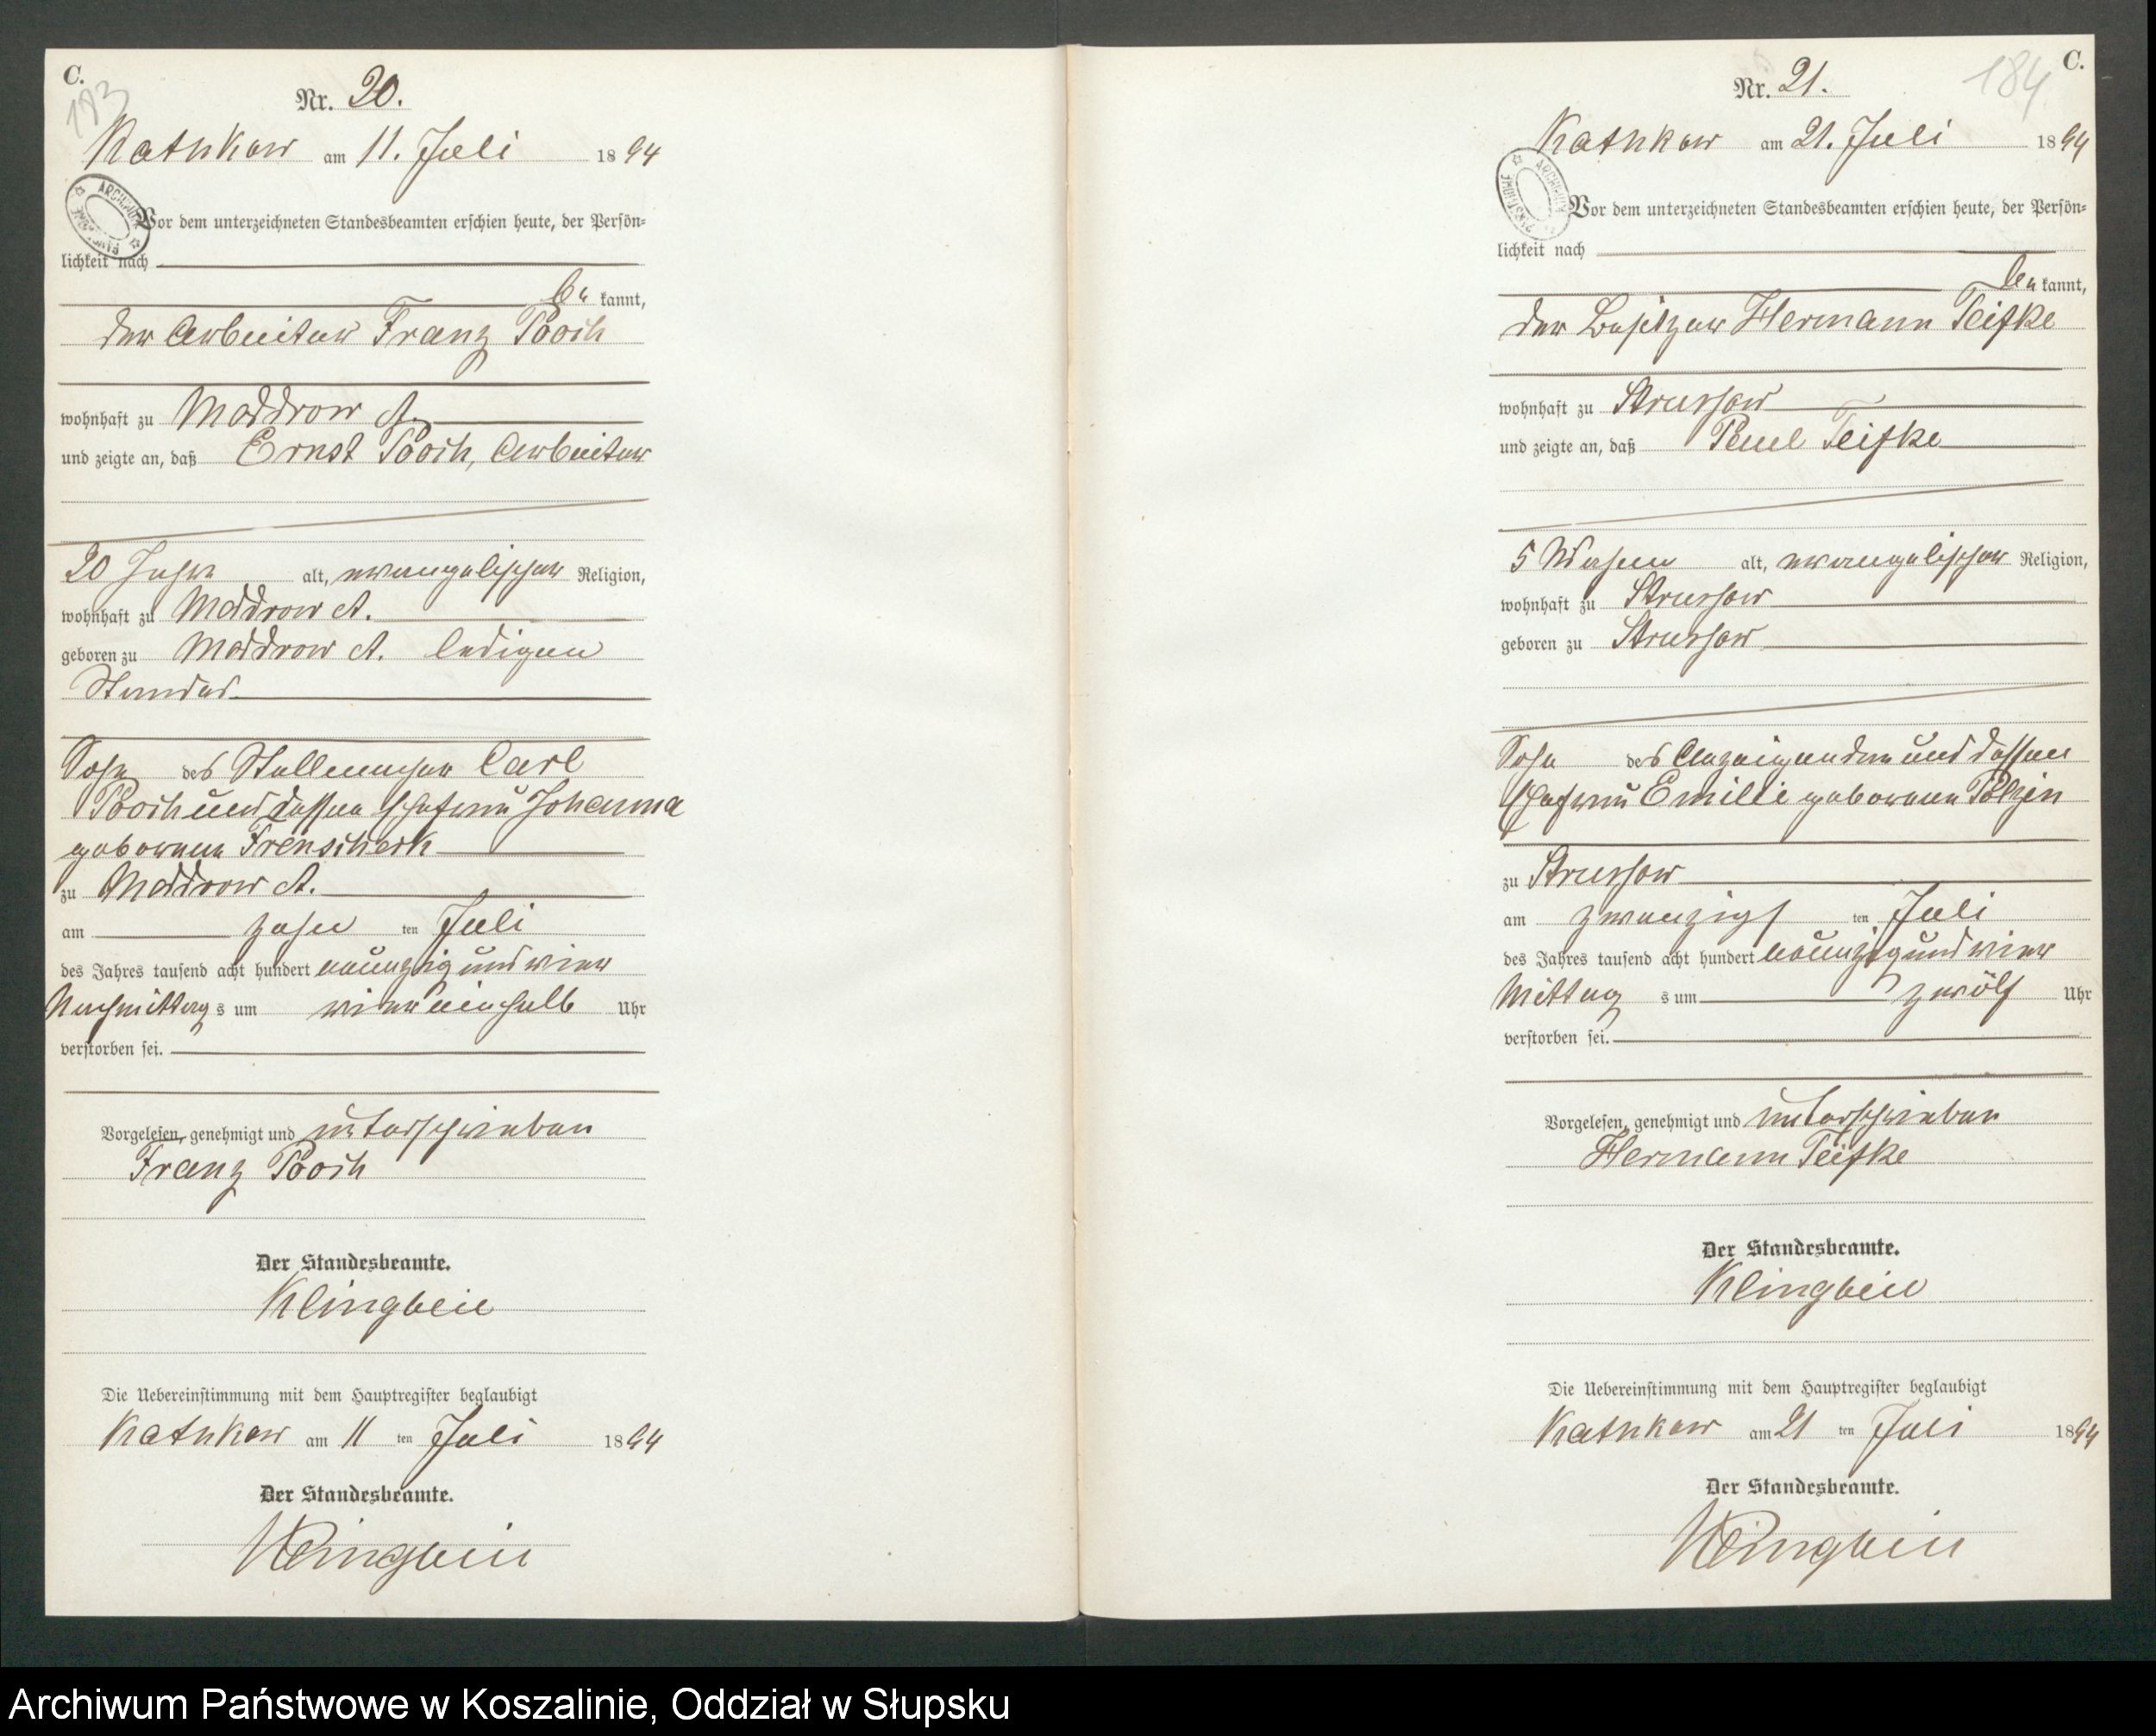 C.
183
Nr. 20.
Kathkow am 11. Juli 1894
Vor dem unterzeichneten Standesbeamten erschien heute, der Persön-
lichkeit nach
be kannt,
der Arbeiter Franz Pooch
wohnhaft zu Moddrow A.
und zeigte an, daß Ernst Pooch, Arbeiter
20 Jahre alt, evangelischer Religion,
wohnhaft zu Moddrow A.
geboren zu Moddrow A. ledigen
Standes
Sohn des Carl
Pooch und dessen Ehefrau Johanna
geborenen
zu Moddrow A.
am zehn ten Juli
des Jahres tausend acht hundert neunzig und vier
Nachmittag s um vier einhalb Uhr
verstorben sei.
Vorgelesen, genehmigt und unterschrieben
Franz Pooch
Der Standesbeamte.
Klingbeil
Die Uebereinstimmung mit dem Hauptregister beglaubigt
Kathkow am 11 ten Juli 1894
Der Standesbeamte.
Klingbeil
C.
184
Nr. 21.
Kathkow am 21. Juli 1894
Vor dem unterzeichneten Standesbeamten erschien heute, der Persön-
lichkeit nach
be kannt,
der Besitzer Hermann Teifke
wohnhaft zu Strussow
und zeigte an, daß Paul Teifke
5 Wochen alt, evangelischer Religion,
wohnhaft zu Strussow
geboren zu Strussow
Sohn des Anzeigenden und dessen
Ehefrau Emilie geborenen Polzin
zu Strussow
am zwanzigs ten Juli
des Jahres tausend acht hundert neunzig und vier
Mittag s um zwölf Uhr
verstorben sei.
Vorgelesen, genehmigt und unterschrieben
Hermann Teifke
Der Standesbeamte.
Klingbeil
Die Uebereinstimmung mit dem Hauptregister beglaubigt
Kathkow am 21 ten Juli 1894
Der Standesbeamte.
Klingbeil
Archiwum Państwowe w Koszalinie, Oddział w Słupsku